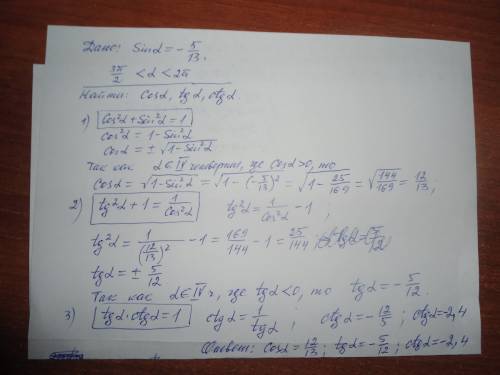 Дано: Sinα = -5/13,
3π/2 < α < 2π
Найти: Cosα, tgα, ctgα.
1) Cos²α + Sin²α = 1
Cos²α = 1 - Sin²α
Cosα = ± √(1 - Sin²α)
Так как α ∈ IV четверти, где Cosα > 0, то
Cosα = √(1 - Sin²α) = √(1 - (-5/13)²) = √(1 - 25/169) = √(144/169) = 12/13;
2) tg²α + 1 = 1/Cos²α tg²α = 1/Cos²α - 1 ;
tg²α = 1/(12/13)² - 1 = 169/144 - 1 = 25/144 ;
tgα = ± 5/12
Так как α ∈ IV ч, где tgα < 0, то tgα = -5/12.
3) tgα · ctgα = 1 ctgα = 1/tgα ; ctgα = -12/5 ; ctgα = -2,4
Ответ: Cosα = 12/13 ; tgα = -5/12 ; ctgα = -2,4